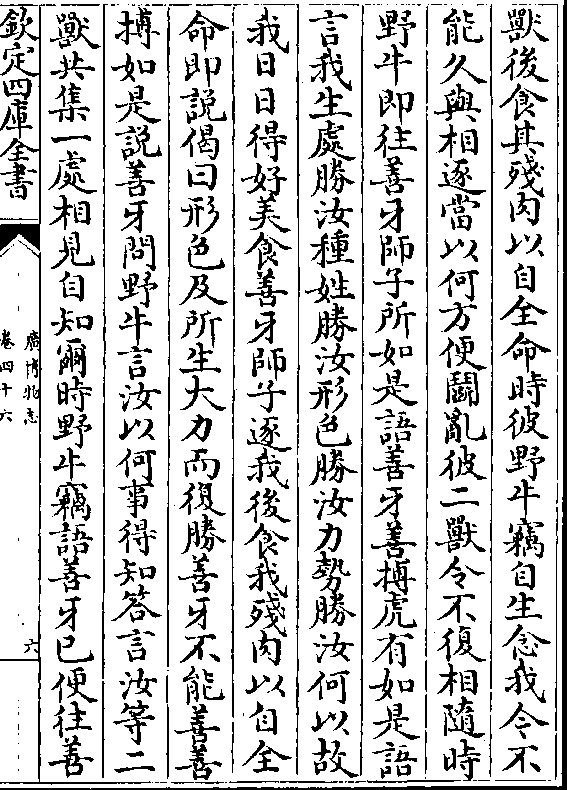 獸後食其殘肉以自全命時彼野牛竊自生念我今不
能久與相逐當以何方便鬭亂彼二獸令不復相隨時
野牛即往善牙師子所如是語善牙善搏虎有如是語
言我生處勝汝種姓勝汝形色勝汝力勢勝汝何以故
我日日得好美食善牙師子逐我後食我殘肉以自全
命即説偈曰形色及所生大力而復勝善牙不能善善
搏如是説善牙問野牛言汝以何事得知答言汝等二
獸共集一處相見自知爾時野牛竊語善牙已便往善
欽定四庫全書
廣博物志
卷四十六
六